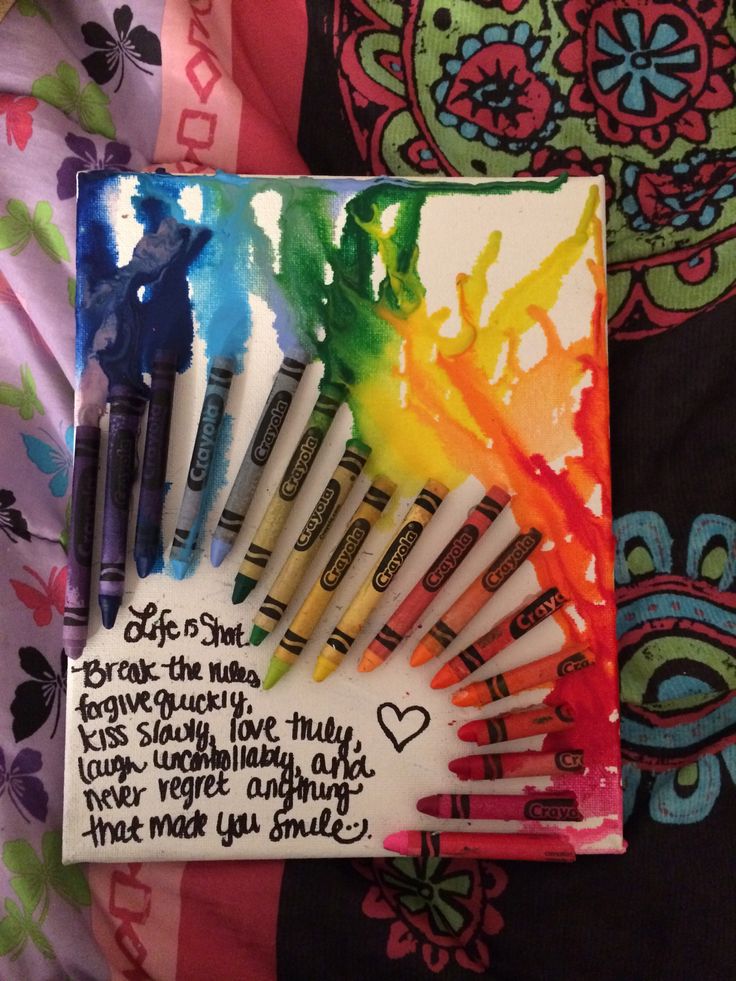 Crayola
Crayola
Crayola
Crayola
Crayola
Crayola
Crayola
Crayola
Crayola
Crayola
Crayo
Cra
Cra
Crayo
Life is Short.
Break the rules,
forgive quickly,
kiss slowly, love truly,
laugh uncontrollably, and
never regret anything
that made you smile :).